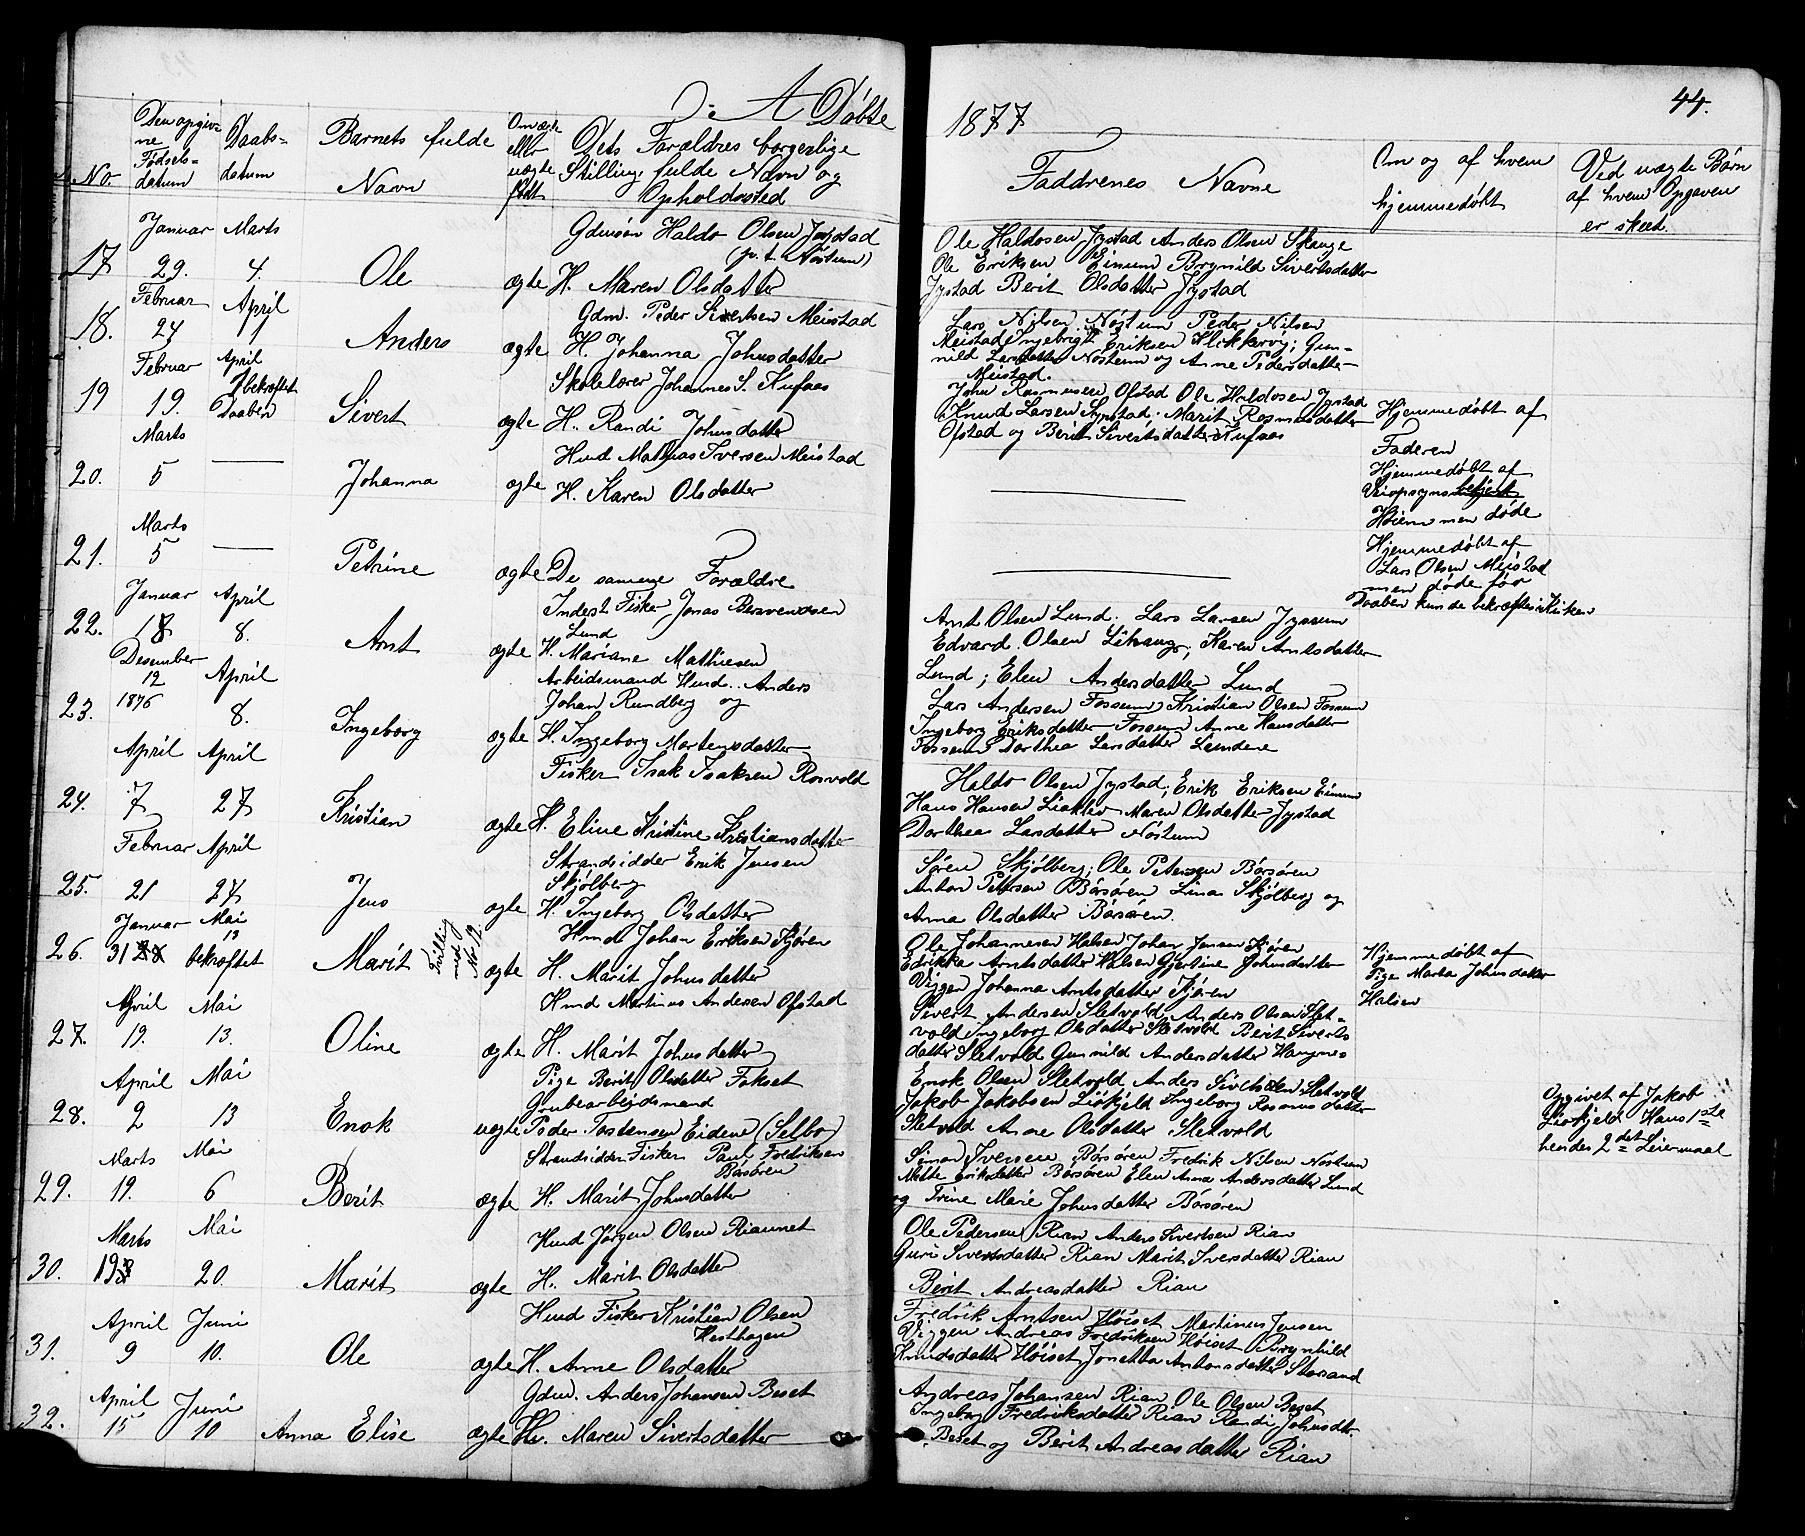 A Døbte
1877
44.
No.
Den opgivne Fødselsdatum
Daabsdatum
Barnets fulde Navn
Om ægte eller uægte født
Dets Forældres borgerlige Stilling, fulde Navn og Opholdssted
Faddrenes Navne
Om og af hvem hjemmedøbt
Ved uægte Børn af hvem Opgaven er skeed.
17 Januar 29. Marts 4. Ole ægte
Gdmsøn Haldo Olsen Jystad
(p. t. Nøstum)
H. Maren Olsdatter
Ole Haldosen Jystad Anders Olsen Skauge
Ole Eriksen Eimum Brynild Sivertsdatter
Jystad Berit Olsdatter Jystad
18. Februar 24 April 1 Anders ægte
Gdm. Peder Sivertsen Meistad
H. Johanna Johnsdatter
Lars Nilsen Nøstum Peder Nilsen
Meistad Ingebrigt Eriksen Klikkervg; Gun-
nild Larsdatter Nøsteum og Anne Pedersdatter
Meistad.
19 Februar 19. April bekræftet Daaben Sivert ægte
Skolelærer Johannes S. Kufaas
H. Randi Johnsdatter
John Rasmussen Ofstad Ole Haldosen Jystad
Knud Larsen Jystad. Marit Rasmusdatter
Ofstad og Berit Sivertsdatter Kufaas
Hjemmedøbt af
Faderen
20. Marts 5 — Johanna ægte
Hmd Mathias Iversen Meistad
H. Karen Olsdatter
Hjemmedøbt af
Veiopsynsbetjent
Høiem men døde
21. Marts 5 — Petrine ægte
De samme Forældre
Hjemmedøbt af
Lars Olsen Meistad
men døde før
Daaben kunde bekræftes i Kirken
22. Januar 18 April 8. Arnt ægte
Inderst Fisker Jonas Bersvendsen
Lund
H. Mariane Mathiesen
Arnt Olsen Lund; Lars Larsen Jyssum
Edvard Olsen Lihaug; Karen Arntsdatter
Lund; Elen Andersdatter Lund
23. Desember 12 1876 April 8. Ingeborg ægte
Arbeidsmand Hmd. Anders
Johan Rundberg og
H. Ingeborg Mortensdatter
Lars Andersen Fossum Kristian Olsen Fossum
Ingeborg Eriksdatter Fossum Anne Hansdatter
Fossum Dorthea Larsdatter Lundene
24. April 7 April 27 Kristian ægte
Fisker Isak Isaksen Rosvold
H. Eline Kristine Kristiansdatter
Haldo Olsen Jystad; Erik Eriksen Eimum
Hans Hansen Liaklev Maren Olsdatter Jystad
Dorthea Larsdatter Nøstum
25. Februar 21 April 27 Jens ægte
Strandsidder Erik Jensen
Skjølberg
H. Ingeborg Olsdatter
Søren Skjølberg; Ole Petersen Børsøren
Anton Petersen Børsøren Lina Skjølberg og
Anna Olsdatter Børsøren.
26. Januar 31 Mai 13 bekræftet Marit Tvilling med No 12. ægte
Hmd Johan Eriksen Kjøren
H. Marit Johnsdatter
Ole Johannesen Halsen Johan Jensen Kjøren
Edrikka Arntsdatter Halsen Gjertine Johnsdatter
Viggen Johanna Arntsdatter Kjøren
Hjemmedøbt af
Pige Marta Johnsdatter
Halsen
27. April 19. Mai 13. Oline ægte
Hmd Martinus Andersen Ofstad
H. Marit Johnsdatter
Sivert Andersen Sletvold Anders Olsen Slet-
vold Ingeborg Olsdatter Sletvold Berit Siverts
datter Sletvold Gunnild Andersdatter Haugnes
28. April 2 Mai 13 Enok uægte
Pige Berit Olsdatter Fokset
Grubearbeidsmand
Peder Tostensen Eidene (Selbo)
Enok Olsen Sletvold Anders Sivertsen Sletvold
Jakob Jakobsen Liøkjeld Ingeborg Rasmusdatter
Sletvold Anne Olsdatter Sletvold
Opgivet af Jakob
Liøkjeld Hans 1ste
hendes 2det Leiermaal
29. Marts 19. Mai 6 Berit ægte
Strandsidder Fisker Paul Fredriksen
Børsøren
H. Marit Johnsdatter
Simon Iversen Børsøren Fredrik Nilsen Nøstum
Mette Eriksdatter Børsøren Elen Anna Andersdatter Lund
og Trine Marie Johnsdatter Børsøren
30. Marts 19 Mai 20. Marit ægte
Hmd Jørgen Olsen Riaunet
H. Marit Olsdatter
Ole Pedersen Rian Anders Sivertsen Rian
Guri Sivertsdatter Rian Marit Iversdatter Rian
Berit Andreasdatter Rian
31. April 9 Juni 10. Ole ægte
Hmd Fisker Kristian Olsen
Hesthagen
H. Anne Olsdatter
Fredrik Arntsen Høiset Martinus Jensen
Viggen Andreas Fredriksen Høiset Brynhild
Knudsdatter Høiset Jonetta Antonsdatter Storsand
32. April 15 Juni 10 Anna Elise ægte
Gdm. Anders Johansen Beset
Hr. Maren Sivertsdatter
Andreas Johansen Rian Ole Olsen Beset
Ingeborg Fredriksdatter Rian Randi Johnsdtr.
Beset og Berit Andreasdatter Rian